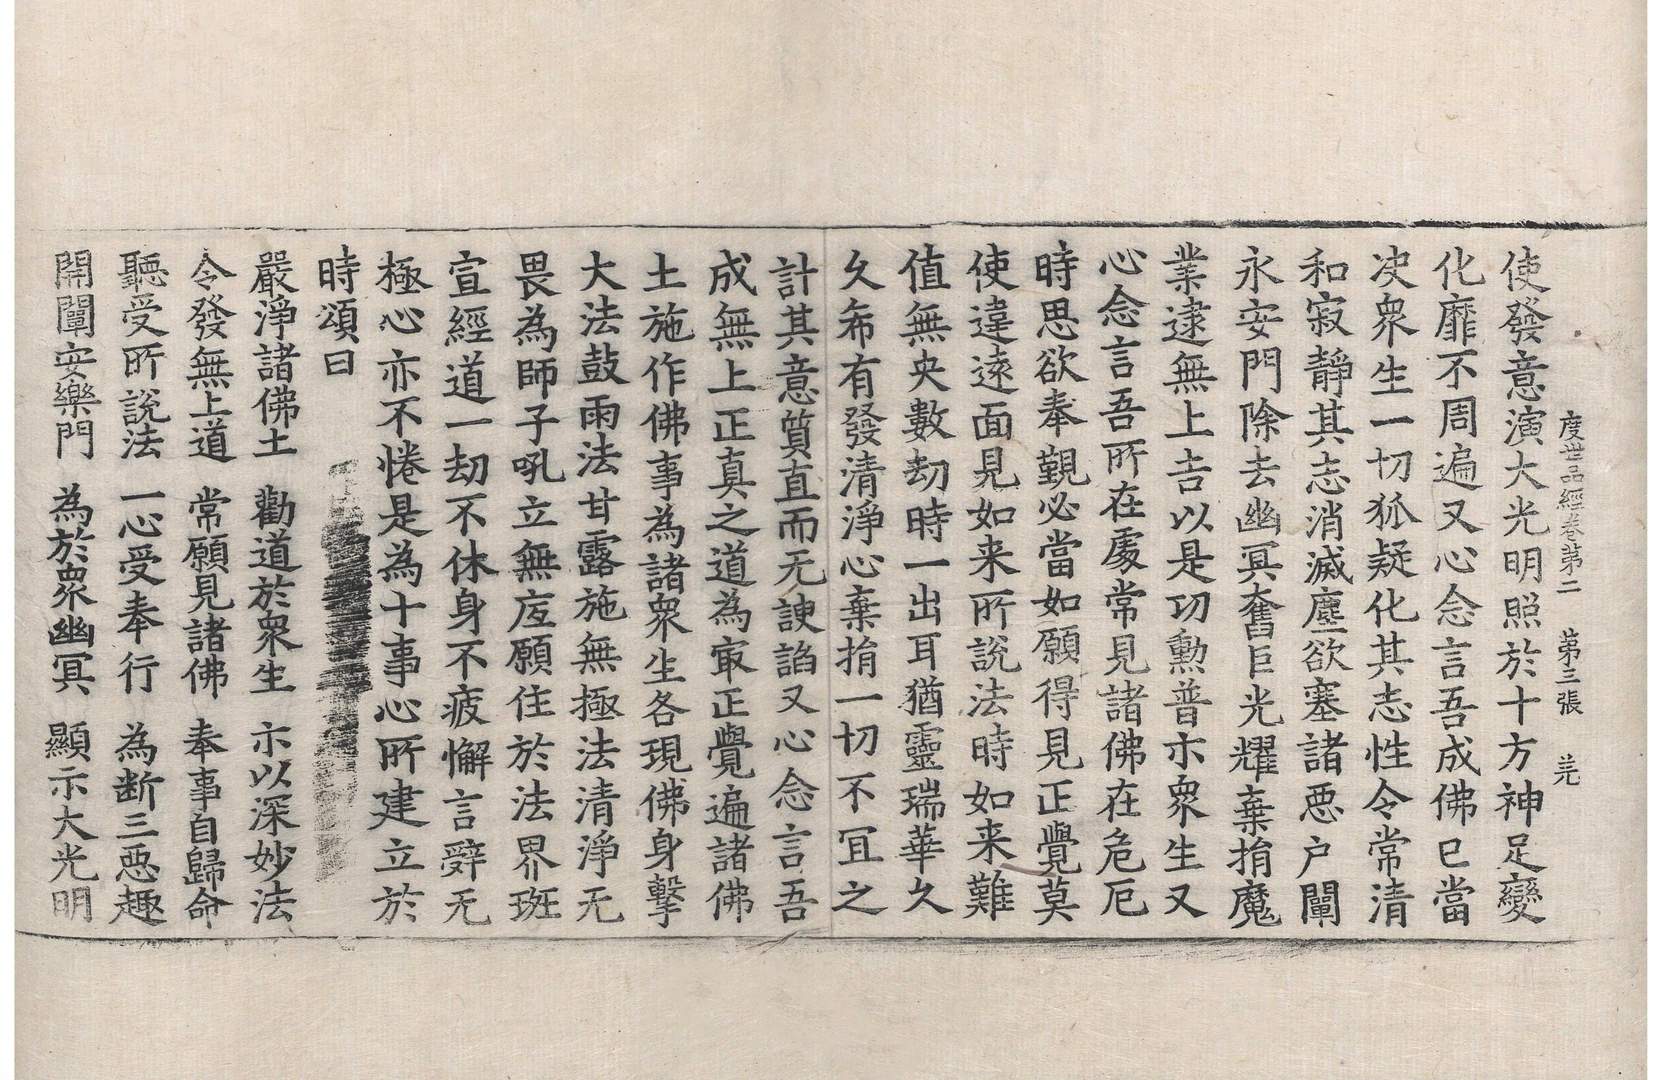 度世品經卷第二　第三張　羌
使發意演大光明照於十方神足變
化靡不周遍又心念言吾成佛已當
决衆生一切狐疑化其志性令常清
和寂靜其志消滅塵欲塞諸惡户闡
永安門除去幽冥奮巨光耀棄捐魔
業逮無上吉以是功勲普示衆生又
心念言吾所在處常見諸佛在危厄
時思欲奉覲必當如願得見正覺莫
使違遠面見如来所説法時如来難
值無央數劫時一出耳猶靈瑞華久
久希有發清淨心棄捐一切不冝之
計其意質直而无諛諂又心念言吾
成無上正真之道為㝡正覺遍諸佛
土施作佛事為諸衆生各現佛身擊
大法鼓雨法甘露施無極法清淨无
畏為師子吼立無㡳願住於法界班
宣經道一劫不休身不疲懈言辭无
極心亦不惓是為十事心所建立於
時頌曰
嚴淨諸佛土　勸道於衆生　示以深妙法
令發無上道　常願見諸佛　奉事自歸命
聽受所説法　一心受奉行　為断三惡趣
開闡安樂門　為於衆幽冥　顯示大光明